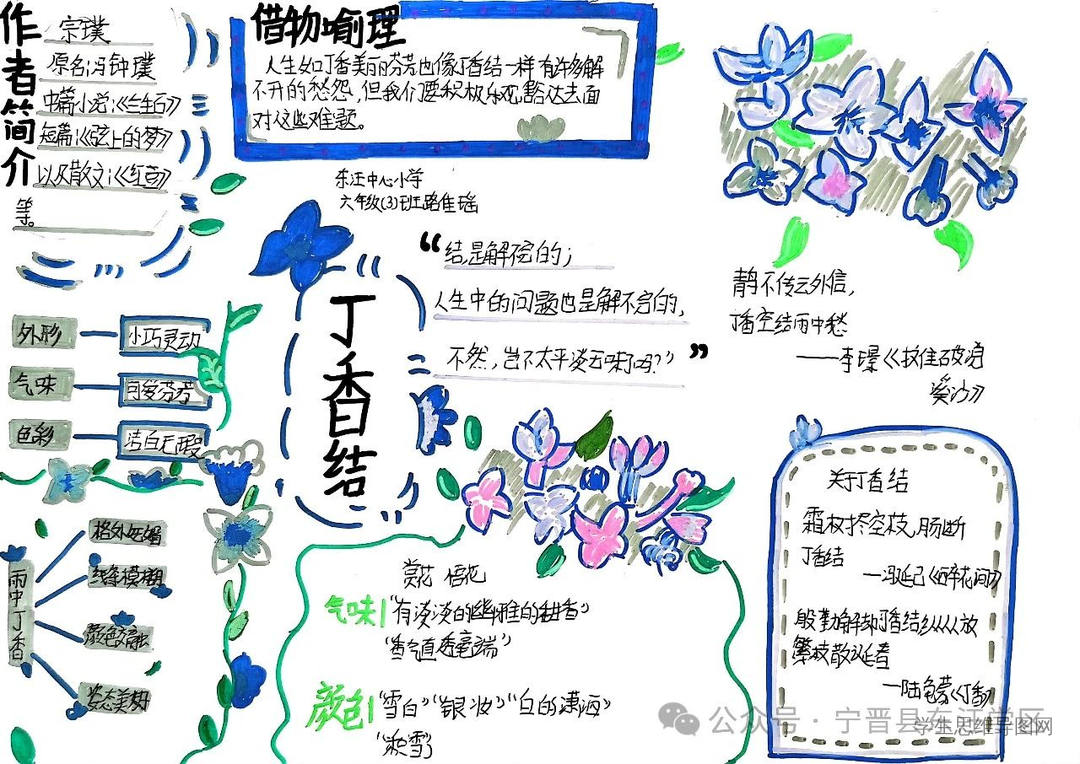 作者简介
宗璞
原名:冯钟璞
中篇小说:《三生石》
短篇:《弦上的梦》
以及散文:《红豆》
等。
借物喻理
人生如丁香美丽芬芳也像丁香结一样有许多解
不开的愁怨,但我们要积极乐观豁达去面
对这些难题。
东汪中心小学
六年级(3)班路佳瑶
外形
小巧灵动
气味
可爱芬芳
色彩
洁白无暇
丁香结
“结,是解不完的;
人生中的问题也是解不完的,
不然,岂不太平淡无味了吗?”
青鸟不传云外信,
丁香空结雨中愁
——李璟《摊破浣
溪沙》
雨中丁香
格外妩媚
线条模糊
颜色交融
姿态美好
赏花 悟花
气味
“有淡淡的幽雅的甜香”
“香气直透毫端”
颜色
“雪白”“银妆”“白的潇洒”
“积雪”
关于丁香结
霜树尽空枝,肠断
丁香结
—冯延己《醉花间》
殷勤解却丁香结纵放
繁枝散诞春
—陆龟蒙《丁香》
公众号·宁晋县东汪学区
学生思维导图网